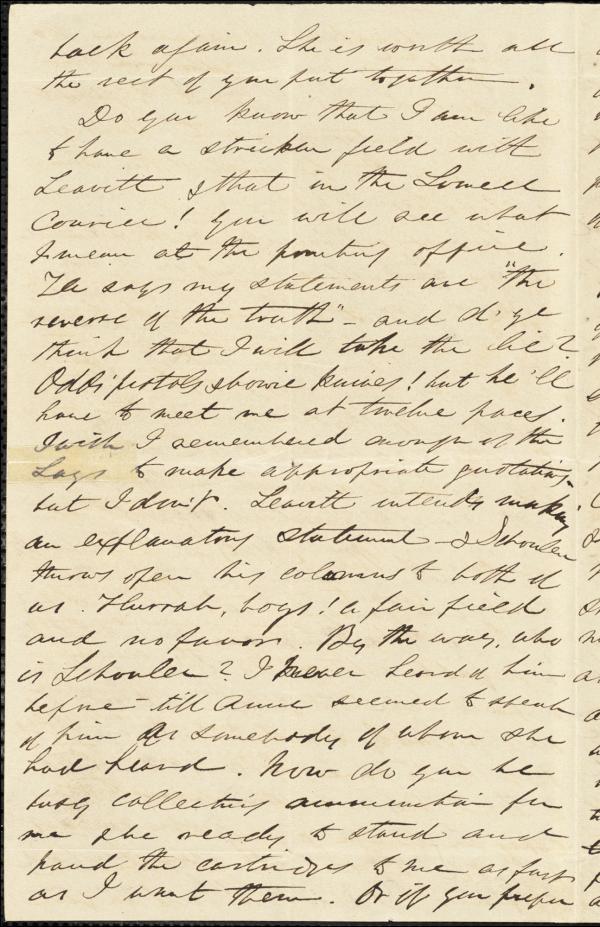 back again. She is worth all
the rest of you put together.
Do you know that I am like
to have a stricken field with
Leavitt & that in the Lowell
Courier! You will see what
I mean at the printing office.
He says my statements are "the
reverse of the truth" - and d'ye
think that I will take the lie?
Odds pistols & bowie knives! but he'll
have to meet me at twelve paces.
I wish I remembered enough of the
Lays to make appropriate quotations
but I don't. Leavitt intends making
an explanatory statement & Schouler
throws open his columns to both of
us. Hurrah, boys! a fair field
and no favors. By the way, who
is Schouler? I never heard of him
before - till Anne seemed to speak
of him as somebody of whom she
had heard. Now do you be
busy collecting ammunition for
me & be ready to stand and
hand the cartridges to me as fast
as I want them. Or if you prefer